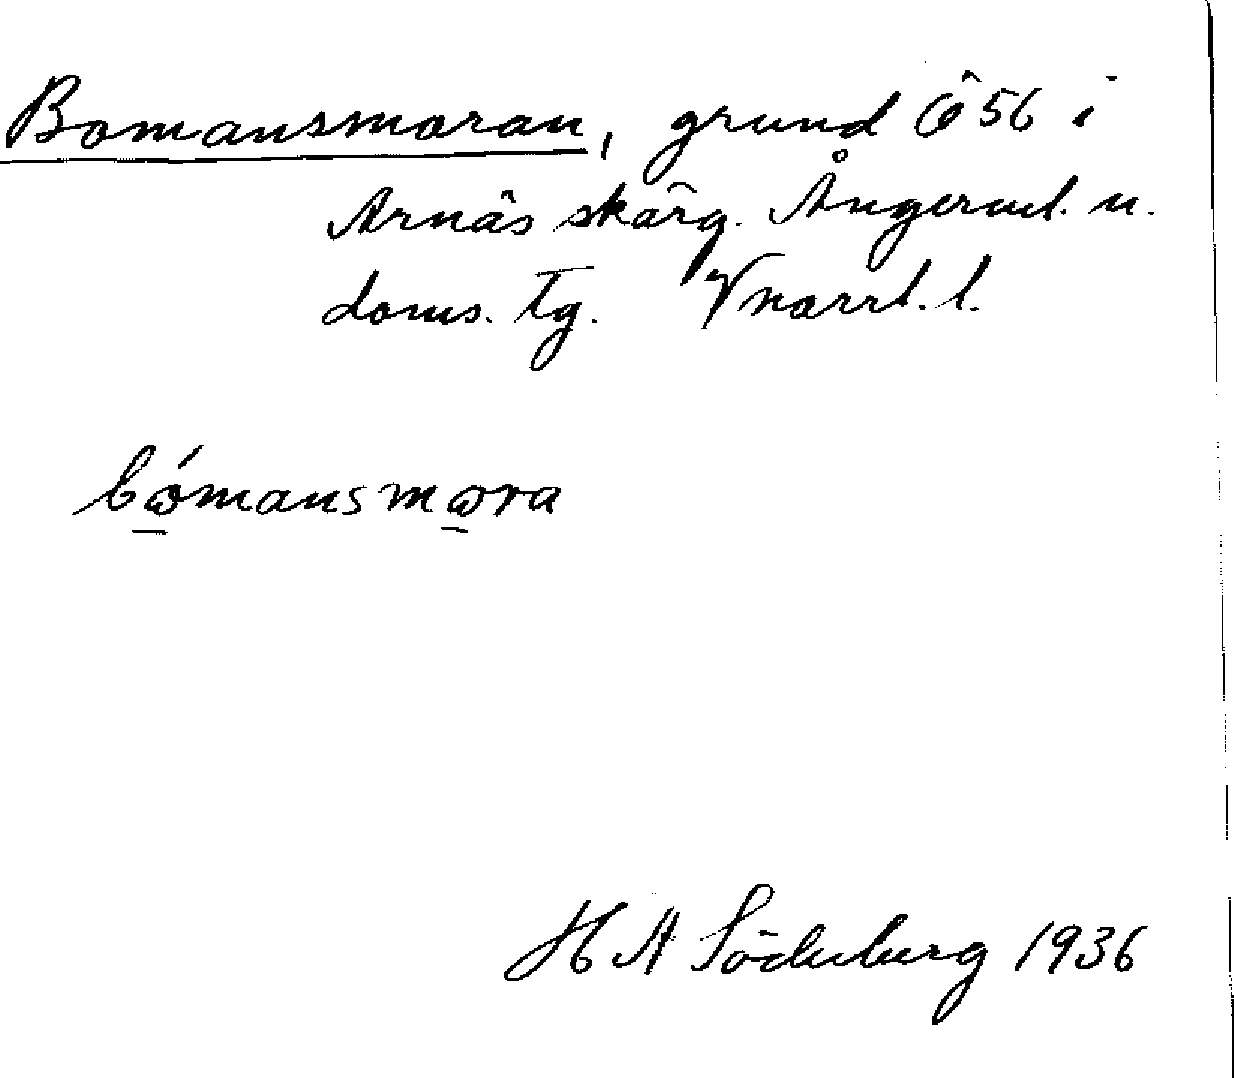 Bomansmoran, grund Ö 56 i
Arnäs skärg. Ångerml. n.
doms. Tg. Vnorrl. l.
bómansmora
H A Söderberg 1936